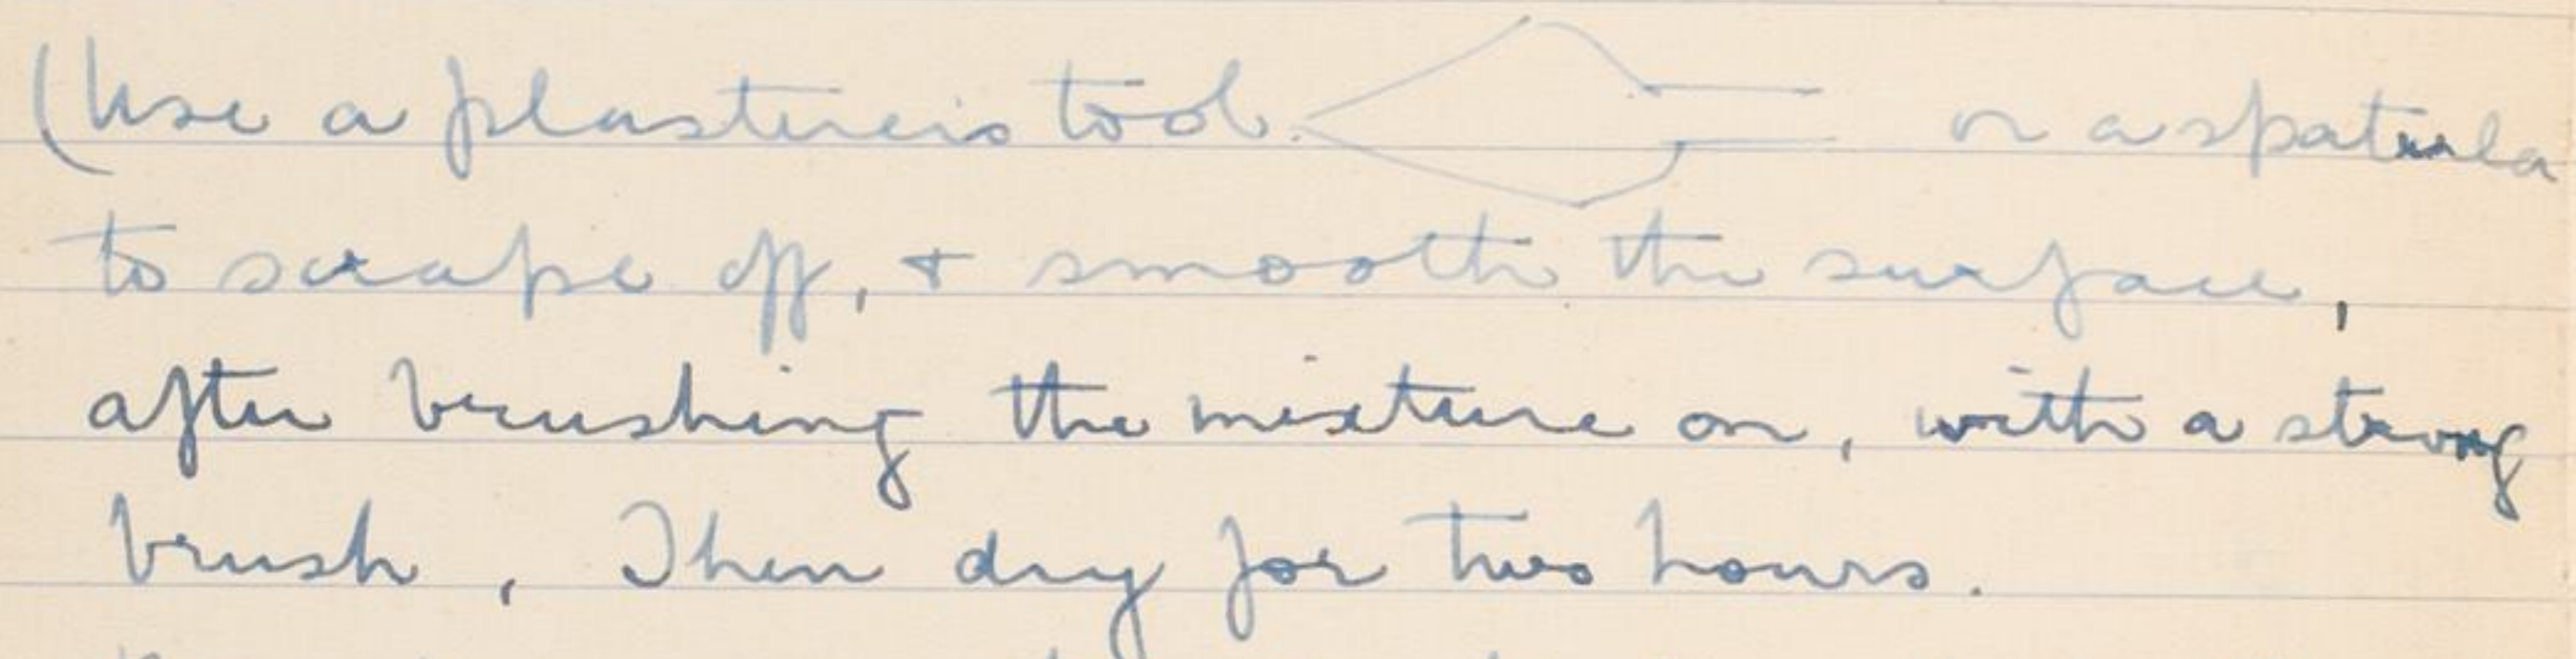 (Use a plasterers tool. or a spatula
to scrape off, + smooth the surface,
after brushing the mixture on, with a strong
brush, Then dry for two hours.